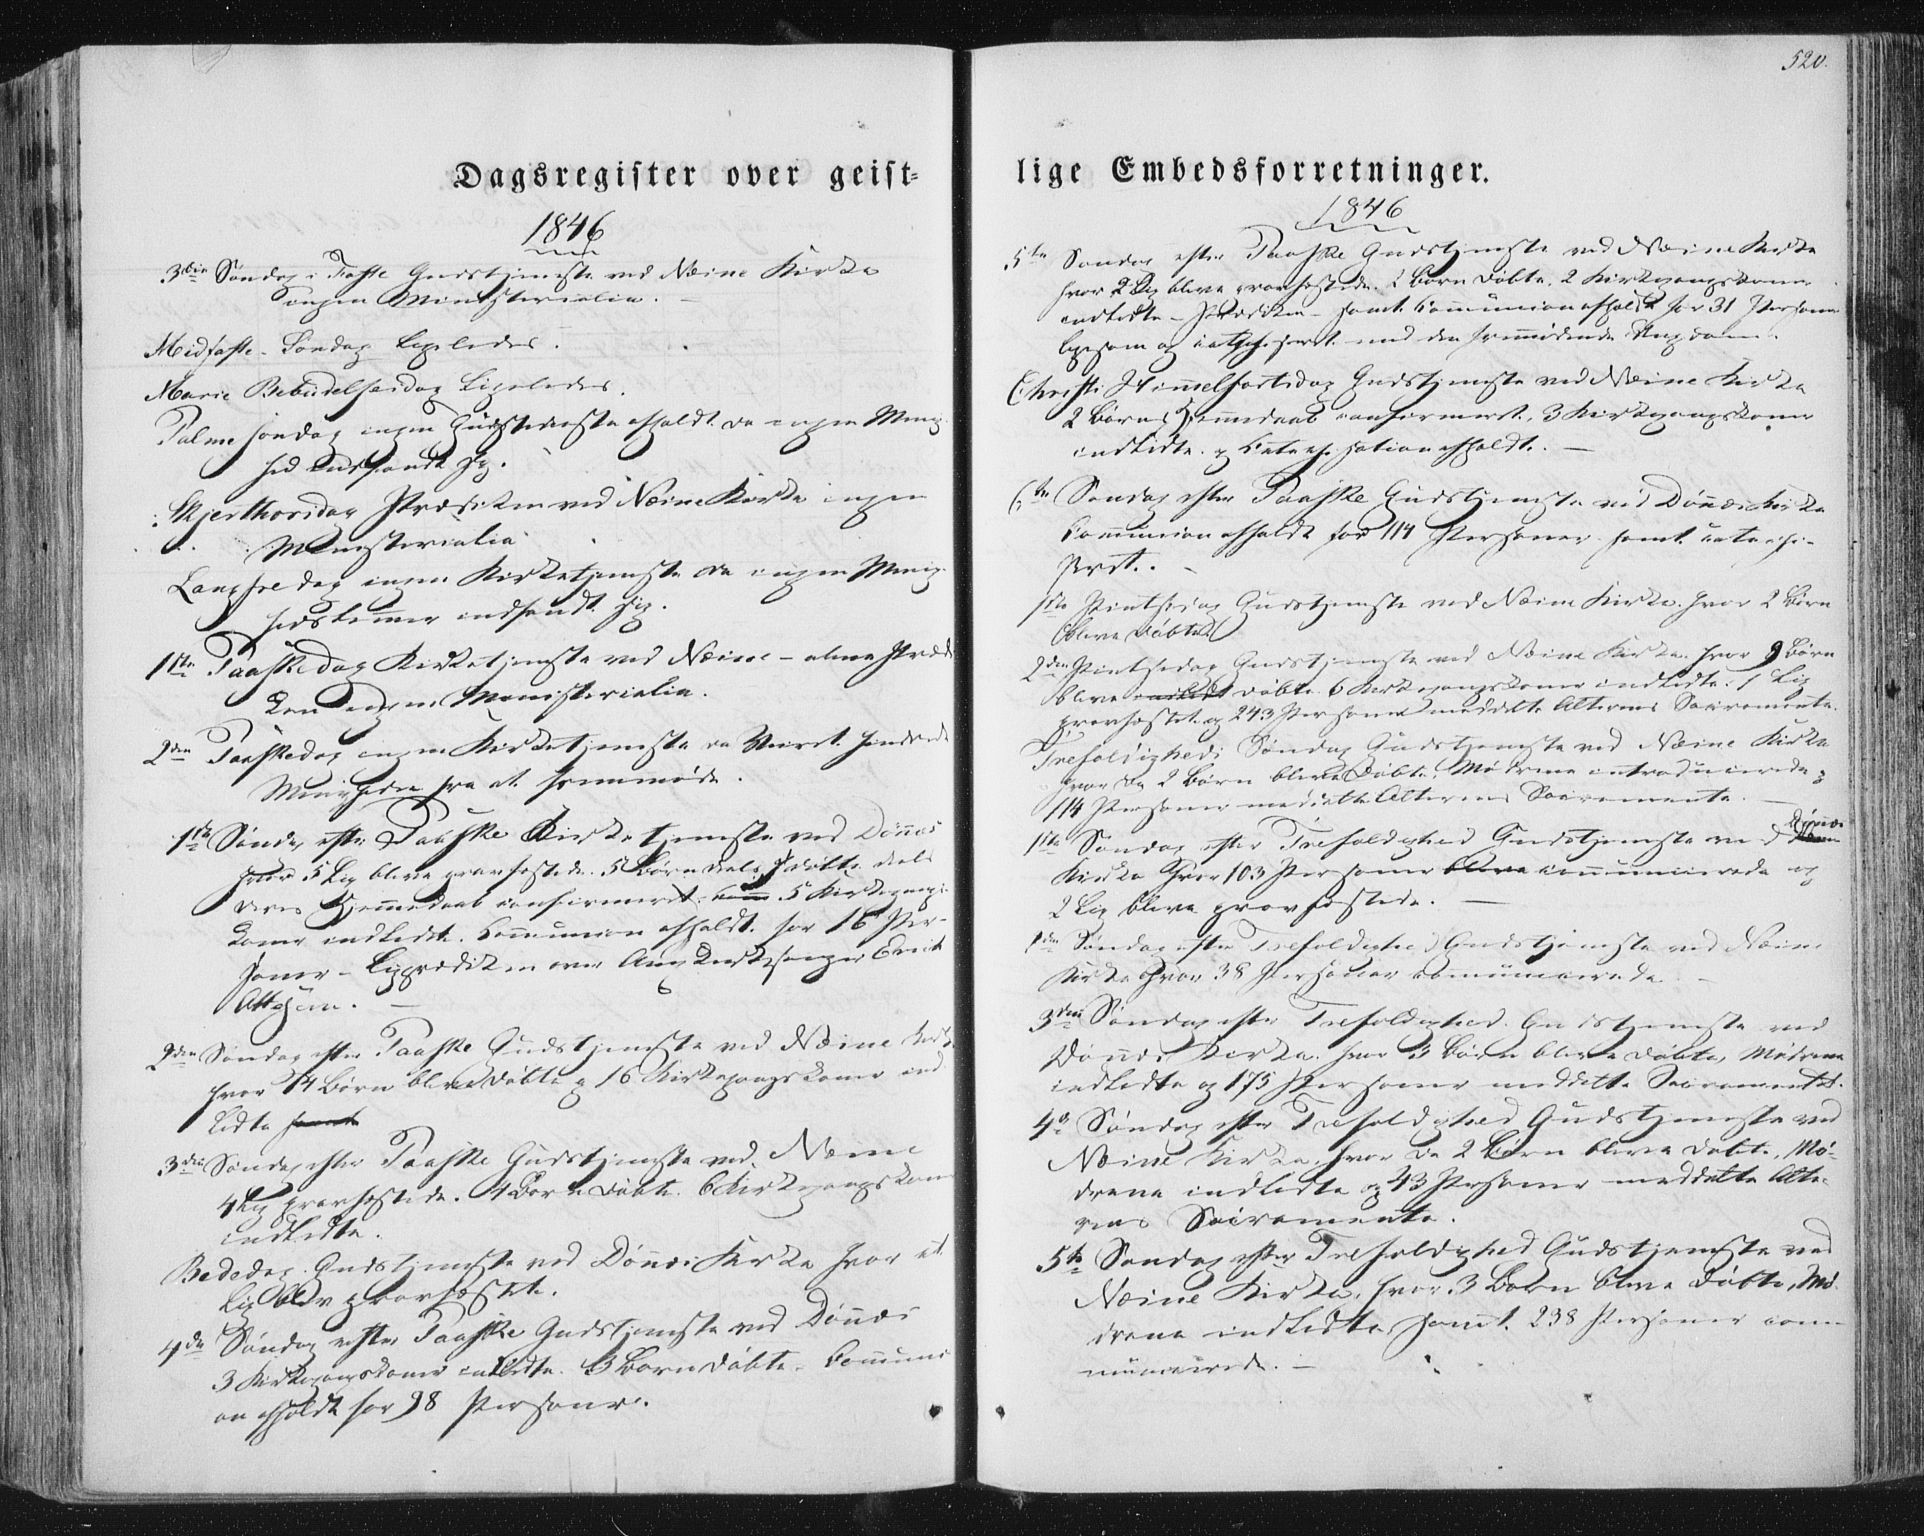 520.
Dagsregister over geist-
1846
3die Søndag i Faste Gudstjeneste ved Næsne Kirke
ingen Ministerialia. —
Midfaste-Søndag Ligeledes.
Marie Bebudelsesdag Ligeledes.
Palmesøndag ingen Gudstjeneste afholdt da ingen Menig-
hed indfandt sig.
Skjerthorsdag Prædiken ved Næsne Kirke ingen
Ministerialia.
Langfredag ingen Kirketjeneste da ingen Menig-
hedslemmer indfandt sig.
1ste Paaskedag Kirketjeneste ved Næsne - alene Prædi-
ken ingen Ministerialia.
2den Paaskedag ingen Kirketjeneste da Veiret hindrede
Menigheden fra at fremmøde.
1ste Søndag efter Paaske Kirketjeneste ved Dønnæs
hvor 5 Lig bleve gravfæstede. 5 Børn deels døbte deels
deres Hjemmedaab confirmeret, 5 Kirkegangs-
koner indledte. Communion afholdt for 16 Per-
soner - Ligprædiken over
2den Søndag efter Paaske Gudstjeneste ved Næsne Kirke
hvor 14 Børn bleve døbte og 16 Kirkegangskoner ind-
ledte
3die Søndag efter Paaske Gudstjeneste ved Næsne
4 Lig gravfæstede. 4 Børn døbte. 6 Kirkegangskoner
indledte.
Bededag. Gudstjeneste ved Dønnæs Kirke hvor et
Lig blev gravfæstet.
4de Søndag efter Paaske Gudstjeneste ved Dønnæs
3 Kirkegangskoner indledte. 3 Børn døbte. Communi-
on afholdt for 98 Personer.
lige Embedsforretninger.
1846
5te Søndag efter Paaske Gudstjeneste ved Næsne Kirke
hvor 2 Lig bleve gravfæstede. 2 Børn døbte. 2 Kirkegangskoner
indledte - Prædiken - samt Communion afholdt for 31 Personer
ligesom og catechiseret med den fremmødende Ungdom.
Christi Himmelfartsdag Gudstjeneste ved Næsne Kirke
2 Børns Hjemmedaab confirmeret, 3 Kirkegangskoner
indledte og Catechisation afholdt. —
6te Søndag efter Paaske Gudstjeneste ved Dønnæs Kirke
Communion afholdt for 114 Personer samt catechi-
seret.
1ste Pintsedag Gudstjeneste ved Næsne Kirke hvor 2 Børn
bleve døbte
2den Pintsedag Gudstjeneste ved Næsne Kirke hvor 9 Børn
bleve døbte 6 Kirkegangskoner indledte. 1 Lig
gravfæstet og 243 Personer meddelte Alterens Sacramente.
Trefoldigheds Søndag Gudstjeneste ved Næsne Kirke
hvor da 2 Børn bleve døbte, Mødrene introducerede og
114 Personer meddelte Alterens Sacramente. —
1ste Søndag efter Trefoldighed Gudstjeneste ved Dønnæs
Kirke hvor 103 Personer bleve communicerede og
2 Lig bleve gravfæstede. —
2den Søndag efter Trefoldighed Gudstjeneste ved Næsne
Kirke hvor 38 Personer communicerede. —
3die Søndag efter Trefoldighed Gudstjeneste ved
Dønnæs Kirke hvor 3 Børn bleve døbte, Mødrene
indledte og 175 Personer meddelte Sacramentet.
4de Søndag efter Trefoldighed Gudstjeneste ved
Næsne Kirke, hvor da 2 Børn bleve døbte, Mø-
drene indledte og 43 Personer meddelte Alte-
rens Sacramente.
5te Søndag efter Trefoldighed Gudstjeneste ved
Næsne Kirke, hvor 3 Børn bleve døbte, Mø-
drene indledte, samt 238 Personer com-
municerede. —